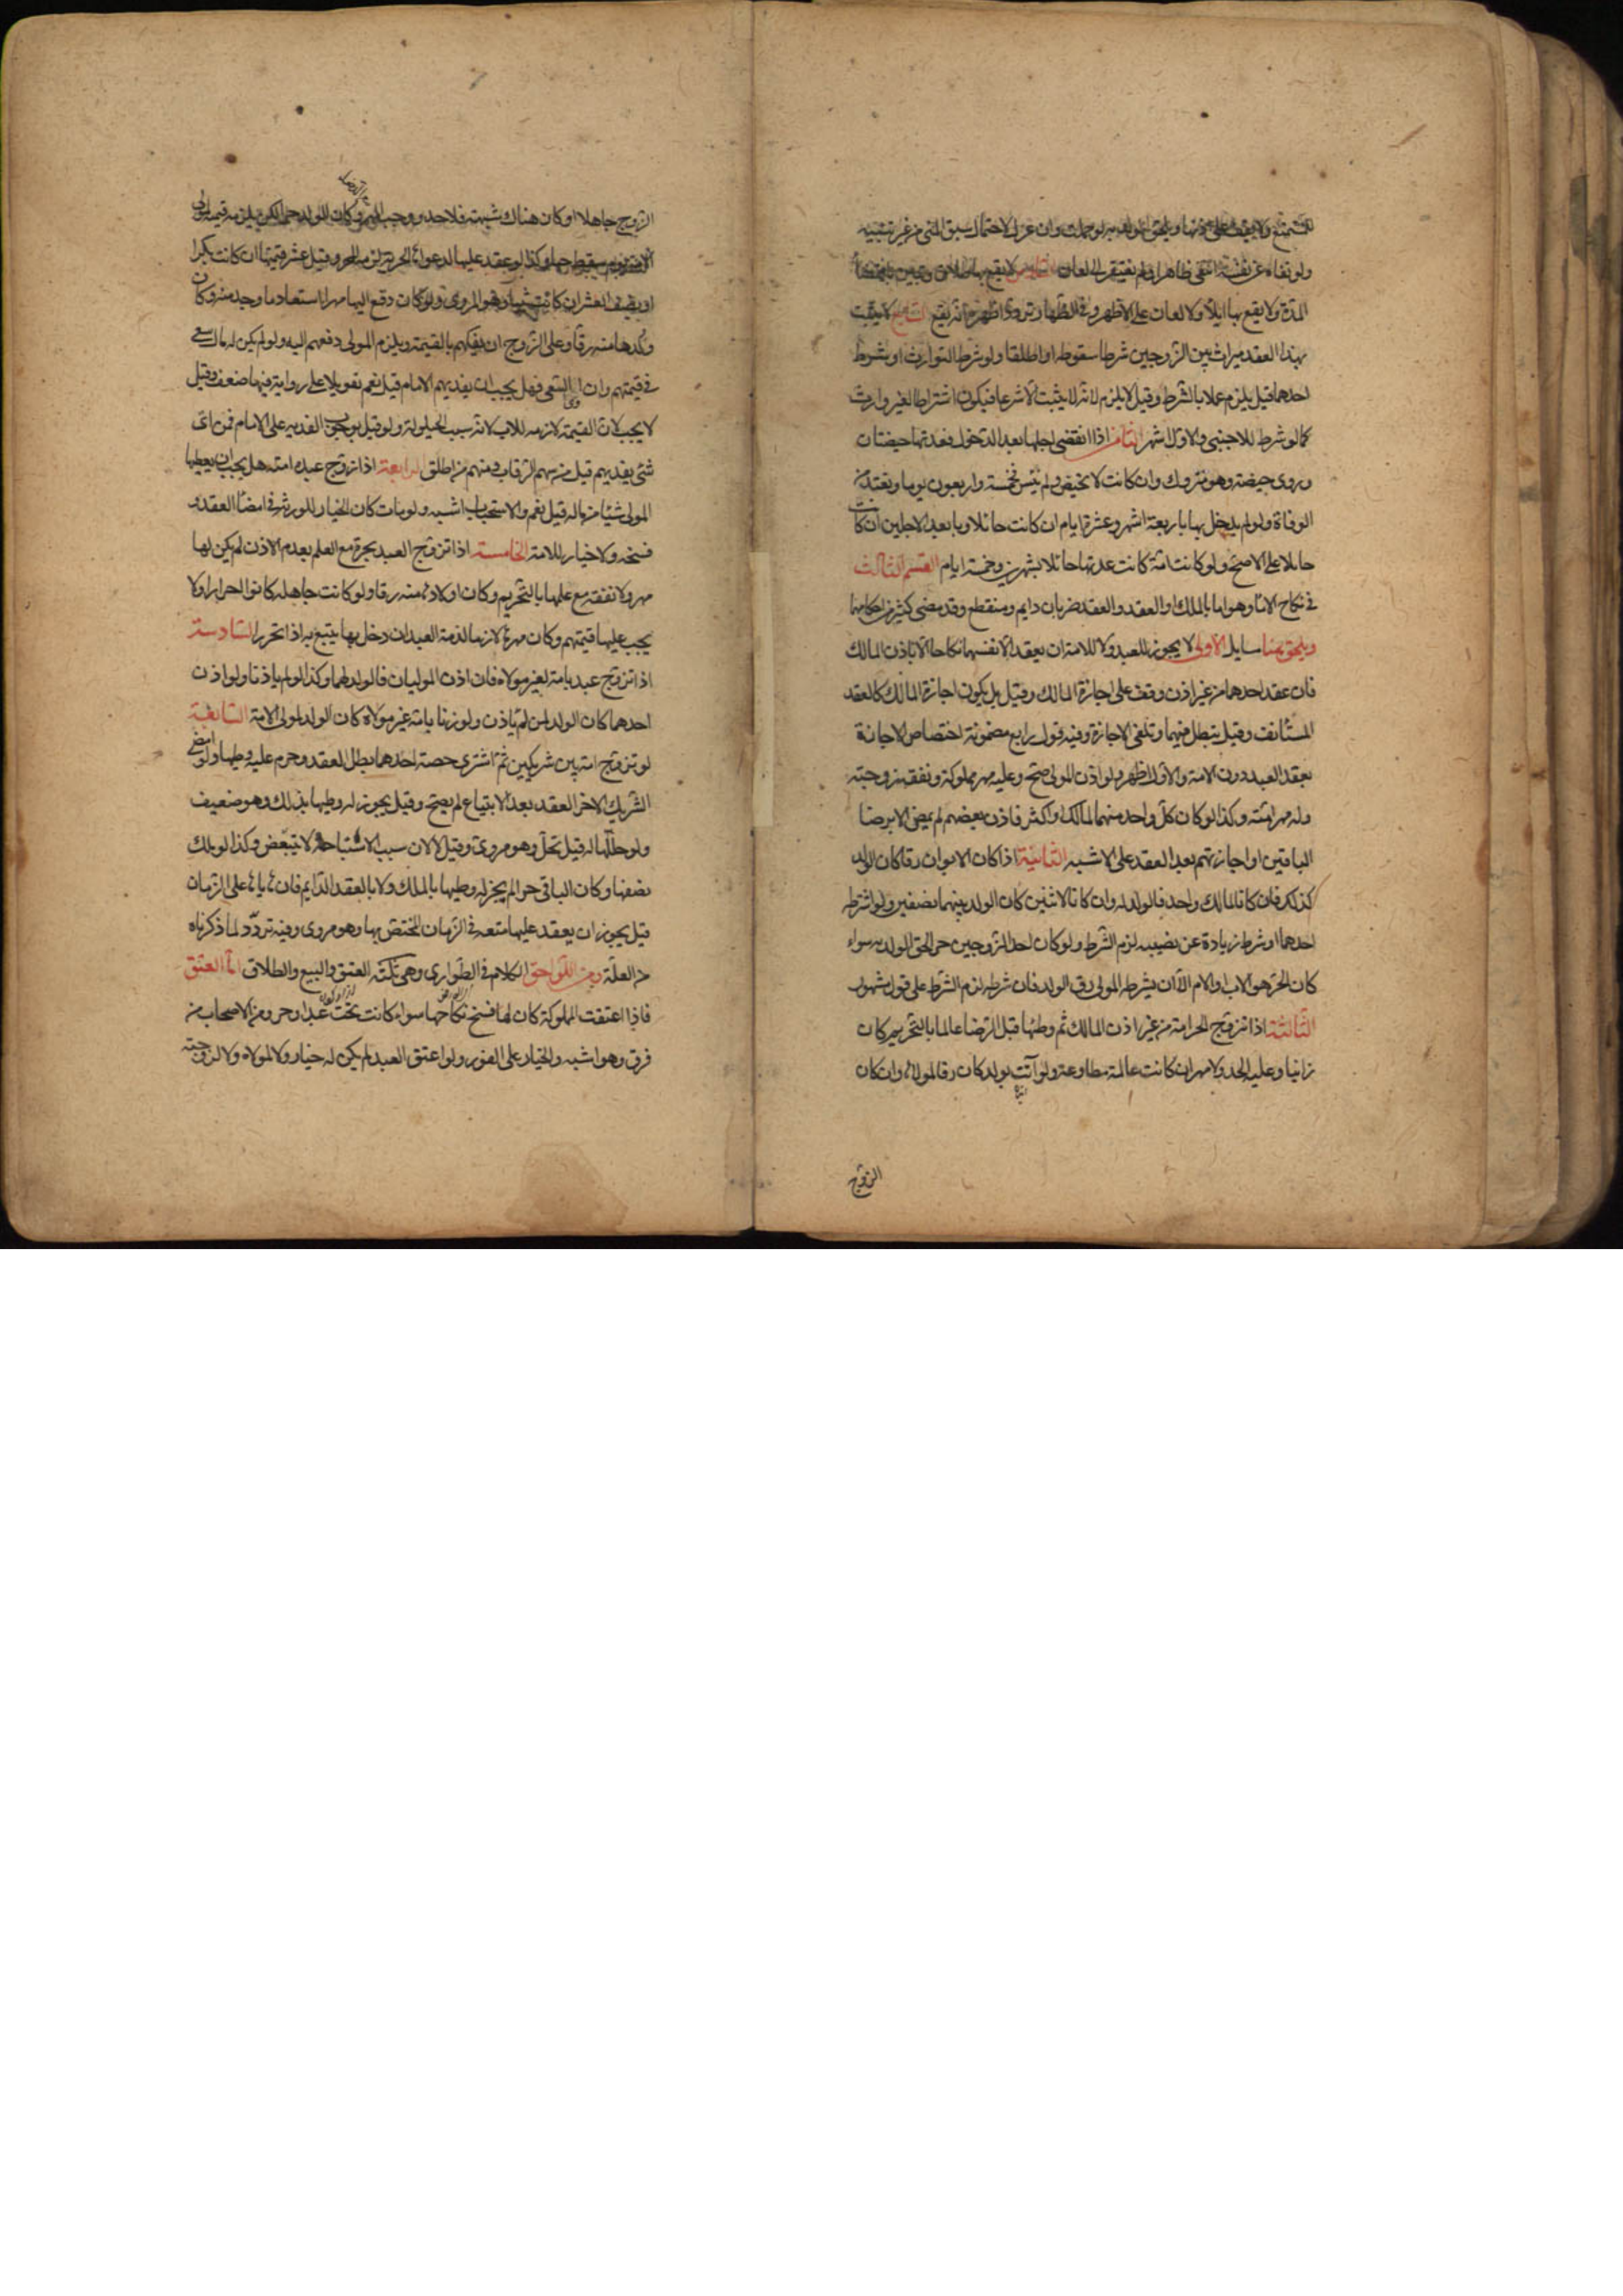 للمتمتع ولا يقف على اذنها ويلحق الولد به لو حملت وان عزل لاحتمال سبق المني من غير تنبيه
ولو نفاه عن نفسه انتفى ظاهرا ولم يفتقر الى اللعان السادس لا يقع بها طلاق وتبين بانقضاء
المدة ولا يقع بها ايلاء ولا لعان على الاظهر وفي الظهار تردد اظهره انه يقع السابع لا يثبت
بهذا العقد ميراث بين الزوجين شرطا سقوطه او اطلقا ولو شرطا التوارث او شرط
احدهما قيل يلزم عملا بالشرط وقيل لا يلزم لانه لا يثبت الا شرعا فيكون اشتراطا لغير وارث
كما لو شرط للاجنبي والاول اشهر الثامن اذا انقضى اجلها بعد الدخول فعدتها حيضتان
وروى حيضة وهو متروك وان كانت لا تحيض ولم تيئس فخمسة واربعون يوما وتعتد من
الوفاة ولو لم يدخل بها باربعة اشهر وعشرة ايام ان كانت حائلا وبابعد الاجلين ان كانت
حاملا على الاصح ولو كانت امة كانت عدتها حائلا بشهرين وخمسة ايام القسم الثالث
في نكاح الاماء وهو اما بالملك او العقد والعقد ضربان دايم ومنقطع وقد مضى كثير من احكامهما
ويلحق هنا مسايل الاولى لا يجوز للعبد ولا للامة ان يعقدا لانفسهما نكاحا الا باذن المالك
فان عقد احدهما من غير اذن وقف على اجازة المالك وقيل بل يكون اجازة المالك كالعقد
المستأنف وقيل يبطل فيهما وتلغى الاجازة وفيه قول رابع مضمونه اختصاص الاجازة
بعقد العبد دون الامة والاول اظهر ولو اذن المولى صح وعليه مهر مملوكه ونفقة زوجته
وله مهر امته وكذا لو كان كل واحد منهما لمالك او اكثر فاذن بعضهم لم يمض الا برضا
الباقين او اجازتهم بعد العقد على الاشبه الثانية اذا كان الابوان رقا كان الولد
كذلك فان كانا لمالك واحد فالولد له وان كانا لاثنين كان الولد بينهما نصفين ولو اشترطه
احدهما او شرط زيادة عن نصيبه لزم الشرط ولو كان احد الزوجين حرا لحق الولد به سواء
كان الحر هو الاب او الام الا ان يشترط المولى رق الولد فان شرطه لزم الشرط على قول مشهور
الثالثة اذا تزوج الحر امة من غير اذن المالك ثم وطئها قبل الرضا عالما بالتحريم كان
زانيا وعليه الحد ولا مهر ان كانت عالمة مطاوعة ولو اتت بولد كان رقا لمولاها وان كان
الزوج
الزوج جاهلا او كان هناك شبهة فلا حد ووجب المهر وكان الولد حرا لكن يلزمه قيمته لمولى
الامة يوم سقط حيا وكذا لو عقد عليها لدعواها الحرية لزمه المهر وقيل عشر قيمتها ان كانت بكرا
او نصف العشر ان كانت ثيبا وهو المروى ولو كان دفع اليها مهرا استعاد ما وجد منه وكان
ولدها منه رقا وعلى الزوج ان يفكهم بالقيمة ويلزم المولى دفعهم اليه ولو لم يكن له مال سعى
في قيمتهم وان ابى السعي فهل يجب ان يفديهم الامام قيل نعم تعويلا على رواية فيها ضعف وقيل
لا يجب لان القيمة لازمه للاب لانه سبب الحيلولة ولو قيل بوجوب الفدية على الامام فمن اى
شئ يفديهم قيل من سهم الرقاب ومنهم من اطلق الرابعة اذا زوج عبده امته هل يجب ان يعطيها
المولى شيئا من ماله قيل نعم والاستحباب اشبه ولو مات كان الخيار للورثة في امضاء العقد و
فسخه ولا خيار للامة الخامسة اذا تزوج العبد بحرة مع العلم بعدم الاذن لم يكن لها
مهر ولا نفقة مع علمها بالتحريم وكان اولادها منه رقا ولو كانت جاهلة كانوا احرارا ولا
يجب عليها قيمتهم وكان مهرها لازما لذمة العبد ان دخل بها يتبع به اذا تحرر السادسة
اذا تزوج عبد بامة لغير مولاه فان اذن الموليان فالولد لهما وكذا لو لم ياذنا ولو اذن
احدهما كان الولد لمن لم ياذن ولو زنا بامة غير مولاه كان الولد لمولى الامة السابعة
لو تزوج امة بين شريكين ثم اشترى حصة احدهما بطل العقد وحرم عليه وطيها ولو امضى
الشريك الاخر العقد بعد الابتياع لم يصح وقيل يجوز له وطيها بذلك وهو ضعيف
ولو حللها له قيل تحل وهو مروى وقيل لا لان سبب الاستباحة لا يتبعض وكذا لو ملك
نصفها وكان الباقي حرا لم يجز له وطيها بالملك ولا بالعقد الدايم فان هاياها على الزمان
قيل يجوز ان يعقد عليها متعه في الزمان المختص بها وهو مروى وفيه تردد لما ذكرناه
من العلة ومن اللواحق الكلام في الطوارى وهي ثلثة العتق والبيع والطلاق اما العتق
فاذا اعتقت المملوكة كان لها فسخ نكاحها سواء كانت تحت عبد او حر ومن الاصحاب من
فرق وهو اشبه والخيار على الفور ولو اعتق العبد لم يكن له خيار ولا لمولاه ولا لزوجته